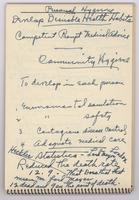 Personal Hygiene
Develop Desirable Health Habits
Competent Prompt Medical Advice
Community Hygiene
To develop in each person
1 Environmental sanitation
2 " safety
3 Contagious disease control
4 Adequate medical care
Health Statistics -
Reduced the death rate
12.9 - That means that
12 died and